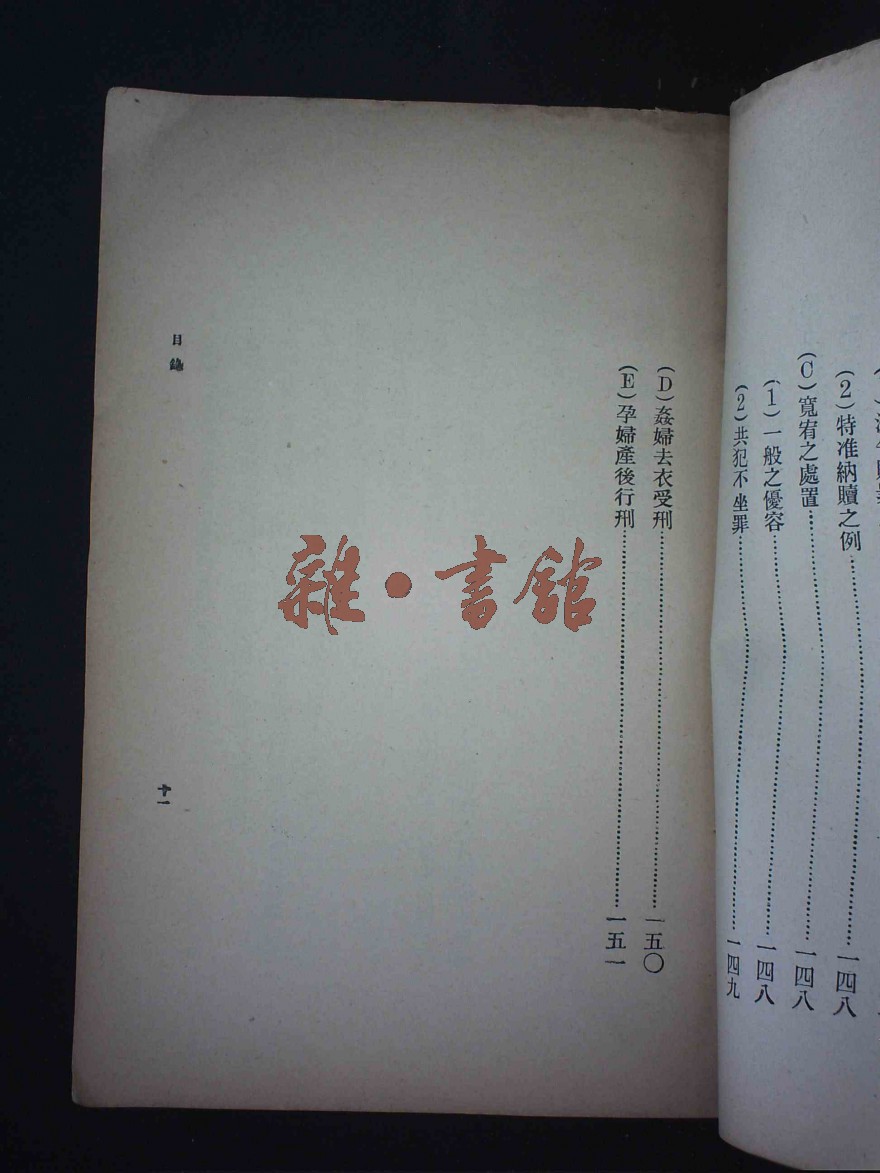 (2)特准納贖之例…一四八
(C)寬宥之處置…一四八
(1)一般之優容…一四八
(2)共犯不坐罪…一四九
(D)姦婦去衣受刑…一五〇
(E)孕婦產後行刑…一五一
目錄
十一
雜·書館